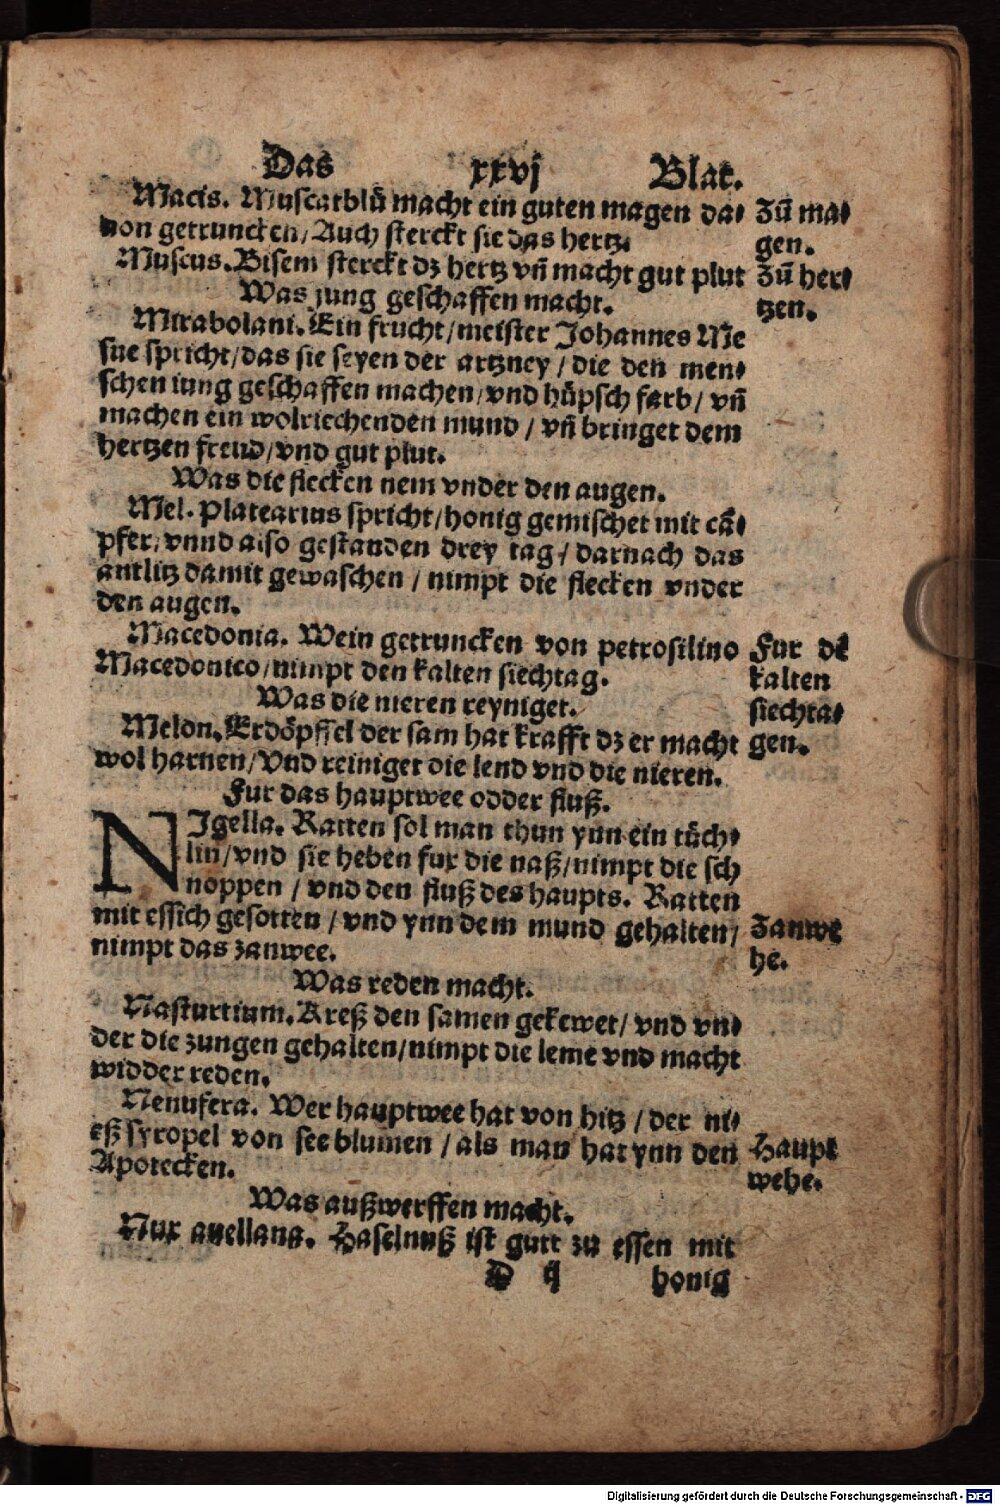 Das xxvj Blat.
Macis. Muscatblů macht ein guten magen da⸗
von getruncken/ Auch sterckt sie das hertz.
Muscus. Bisem sterckt dz hertz vñ macht gut plut
Was jung geschaffen macht.
Mirabolani. Ein frucht/ meister Johannes Me
sue spricht/ das sie seyen der artzney / die den men⸗
schen iung geschaffen machen/ vnd hüpsch farb/ vñ
machen ein wolriechenden mund / vñ bringet dem
hertzen freud/ vnd gut plut.
Was die flecken nem vnder den augen.
Mel. Platearius spricht/ honig gemischet mit cã⸗
pfer/ vnnd also gestanden drey tag / darnach das
antlitz damit gewaschen / nimpt die flecken vnder
den augen.
Macedonia. Wein getruncken von petrosilino
Macedonico/ nimpt den kalten siechtag.
Was die nieren reyniget.
Melon. Erdöpffel der sam hat krafft dz er macht
wol harnen/ Vnd reiniget die lend vnd die nieren.
Fur das hauptwee odder fluß.
NIgella. Ratten sol man thun ynn ein tüch⸗
lin/ vnd sie heben fur die naß/ nimpt die sch
noppen / vnd den fluß des haupts. Ratten
mit essich gesotten / vnd ynn dem mund gehalten/
nimpt das zanwee.
Was reden macht.
Nasturtium. Kreß den samen gekewet/ vnd vn⸗
der die zungen gehalten/ nimpt die leme vnd macht
widder reden.
Nenufera. Wer hauptwee hat von hitz / der ni⸗
eß syropel von seeblumen / als man hat ynn den
Apotecken.
Was außwerffen macht.
Nux auellana. Haselnuß ist gutt zu essen mit
D ij honig
Zů ma⸗
gen.
Zů her⸗
tzen.
Fur dẽ
kalten
siechta⸗
gen.
Zanwe
he.
Haupt
wehe.
Digitalisierung gefördert durch die Deutsche Forschungsgemeinschaft - DFG